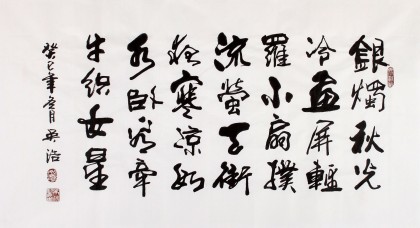 銀燭秋光
冷畫屏輕
羅小扇撲
流螢天街
夜寒涼如
水卧看牽
牛織女星
癸巳年月吳浩